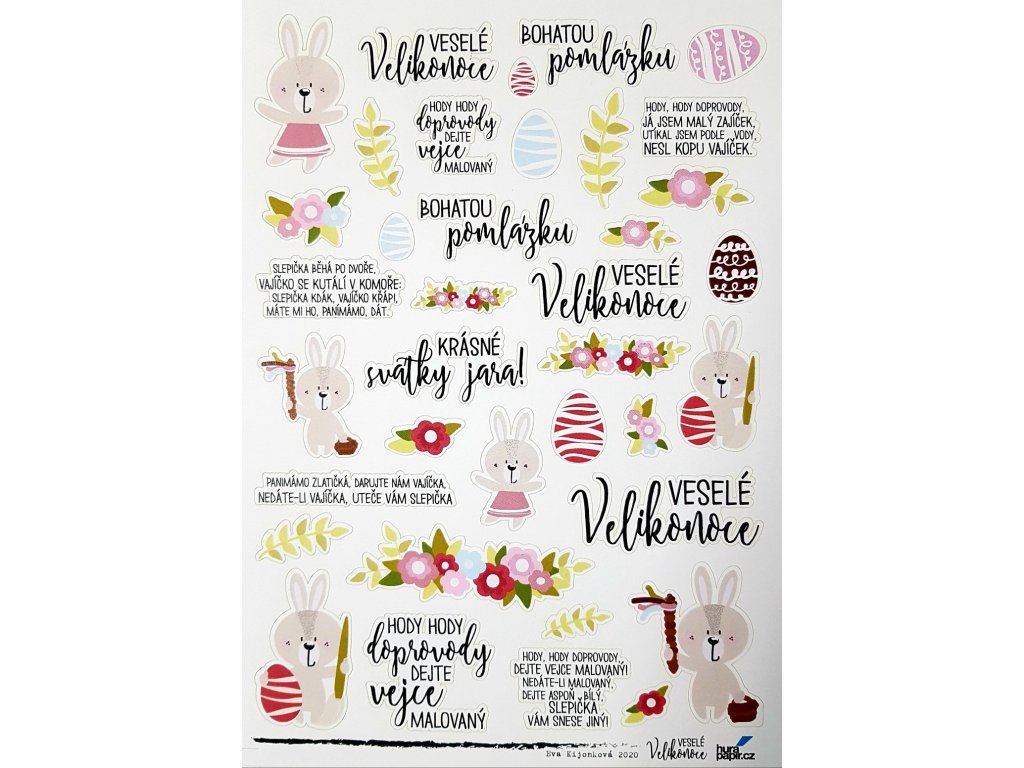 VESELÉ
Velikonoce
BOHATOU
pomlázku
HODY HODY
doprovody
DEJTE
vejce
MALOVANÝ
HODY, HODY DOPROVODY,
JÁ JSEM MALÝ ZAJÍČEK,
UTÍKAL JSEM PODLE VODY,
NESL KOPU VAJÍČEK.
BOHATOU
pomlázku
SLEPIČKA BĚHÁ PO DVOŘE,
VAJÍČKO SE KUTÁLÍ V KOMOŘE:
SLEPIČKA KDÁK, VAJÍČKO KŘÁP!,
MÁTE MI HO, PANÍMÁMO, DÁT.
VESELÉ
Velikonoce
KRÁSNÉ
svátky jara!
PANIMÁMO ZLATIČKÁ, DARUJTE NÁM VAJÍČKA,
NEDÁTE-LI VAJÍČKA, UTEČE VÁM SLEPIČKA
VESELÉ
Velikonoce
HODY HODY
doprovody
DEJTE
vejce
MALOVANÝ
HODY, HODY DOPROVODY,
DEJTE VEJCE MALOVANÝ!
NEDÁTE-LI MALOVANÝ,
DEJTE ASPOŇ BÍLÝ,
SLEPIČKA
VÁM SNESE JINÝ!
Eva Kijonková 2020
VESELÉ
Velikonoce
hura
papir.cz